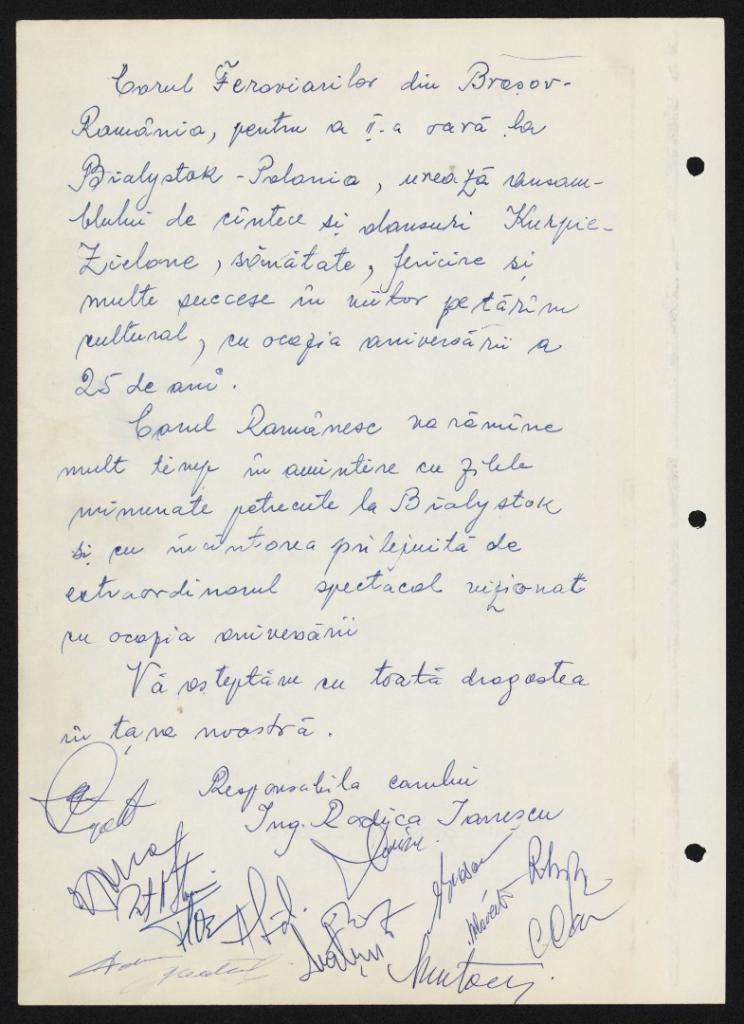 Corul Feroviarilor din Brașov-
România, pentru a II-a oară la
Bialystok - Polonia, urează ansam-
blului de cîntece și dansuri Kurpie-
Zielone, sănătate, fericire și
multe succese în viitor pe tărîm
cultural, cu ocazia aniversării a
25 de ani.
Corul Românesc va rămîne
mult timp în amintire cu zilele
minunate petrecute la Bialystok
și cu încîntarea prilejuită de
extraordinarul spectacol vizionat
cu ocazia aniversării
Vă așteptăm cu toată dragostea
în țara noastră.
Responsabila corului
Ing. Rodica Ianescu